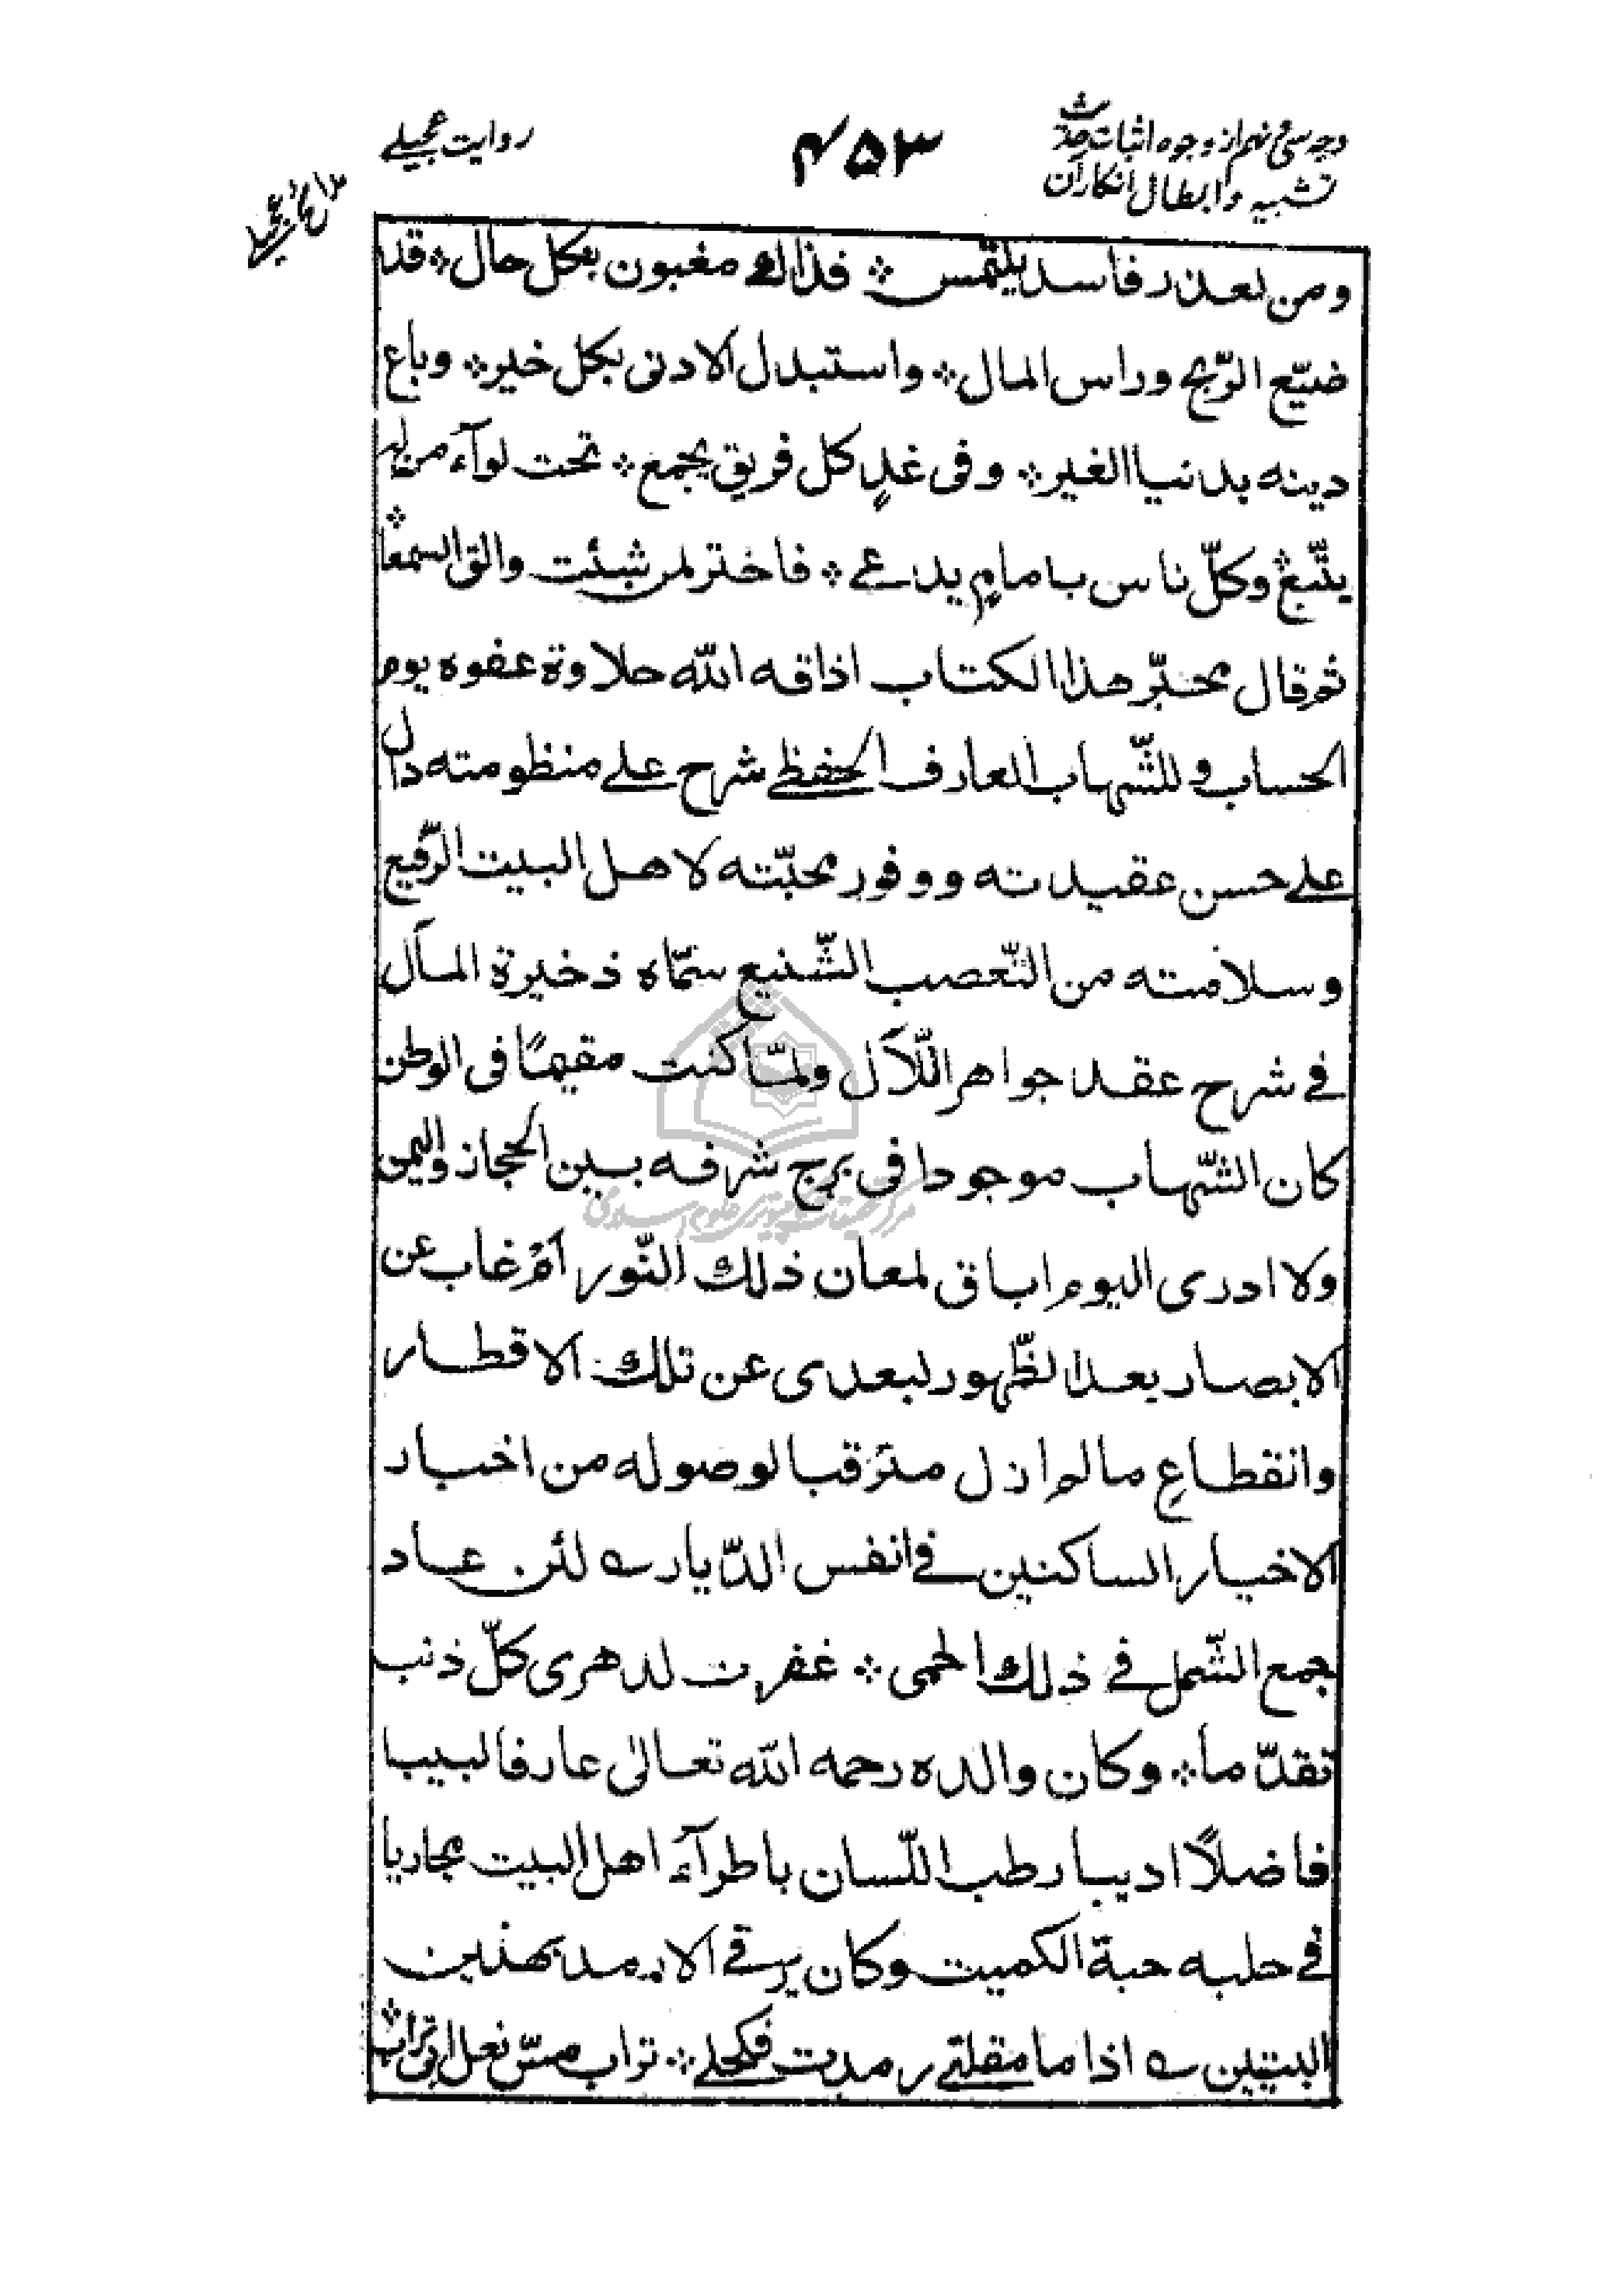 وجه سی و نهم از وجوه اثبات حدیث
تشبیه و ابطال انکار آن
۴۵۳
روایت عجیلی
مدائح عجیلی
ومن لعذر فاسد یلتمس ؞ فذالک مغبون بکل حال ؞ قد
ضیّع الرّبح وراس المال ؞ واستبدل الادنی بکل خیر ؞ وباع
دینه بدنیا الغیر ؞ وفی غدٍ کل فریق یجمع ؞ تحت لوآء من له
یتّبع ؞ وکلّ ناس بامامٍ یدعی ؞ فاختر لمن شئت والق السمعا ؞
ثم قال محبّر هذا الکتاب اذاقه اللّه حلاوة عفوه یوم
الحساب وللشّهاب العارف الحفظی شرح علی منظومته دال
علی حسن عقیدته ووفور محبّته لاهل البیت الرّفیع
وسلامته من التّعصب الشّنیع سمّاه ذخیرة المآل
فی شرح عقد جواهر اللّآل ولمّا کنت مقیمًا فی الوطن
کان الشّهاب موجودا فی برج شرفه بین الحجاز والیمن
ولا ادری الیوم اباق لمعان ذلک النّور اَم غاب عن
الابصار بعد الظّهور لبعدی عن تلک الاقطار
وانقطاعِ ما لم ازل مترقبا لوصوله من اخبار
الاخیار الساکنین فی انفس الدّیار ے لئن عاد
جمع الشّمل فی ذلک الحمی ؞ غفرت لدهری کلّ ذنب
تقدّما ؞ وکان والده رحمه اللّه تعالیٰ عارفا لبیبا
فاضلًا ادیبا رطب اللّسان باطرآء اهل البیت مجاریا
فی حلبه حبة الکمیت وکان یرقی الارمد بهذین
البیتین ے اذا ما مقلتی رمدت فکحلی ؞ تراب مسّ نعل ابی تراب ؞